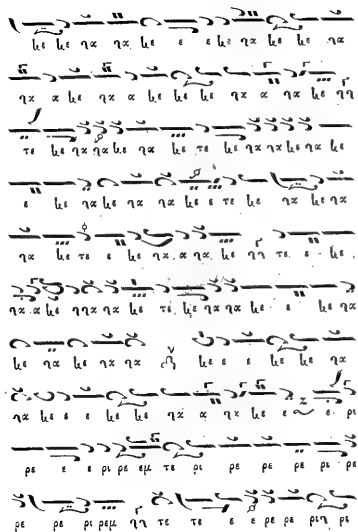 κε κε ηα ηα κε ε ε κε ηα κε κε ηα
ηα α κε ηα α κε κε κε ηα α ηα κε ηη
τε κε ηα ηα κε ηα κε τε κε ηα ηα κε ηα κε
ε κε ηα κε ηα ηα κε ε τε κε ηα κε ηα
ηα κε τε ε κε ηα α ηα κε ηη τε ε κε
ηα α κε ηη ηα ηα κε τε κε ηα ηα κε ε κε ηα
κε ηα κε ηα κε ε ε κε κε ηα
ηα κε ε ε κε κε ηα α ηα κε ε ε ρι
ρε ε ε ρι ρε εμ τε ρι ρε ρε ρε ρι ρε
ρε ρε ρι ρεμ ηη τε τε ε ε ρε ρε ριη ρε